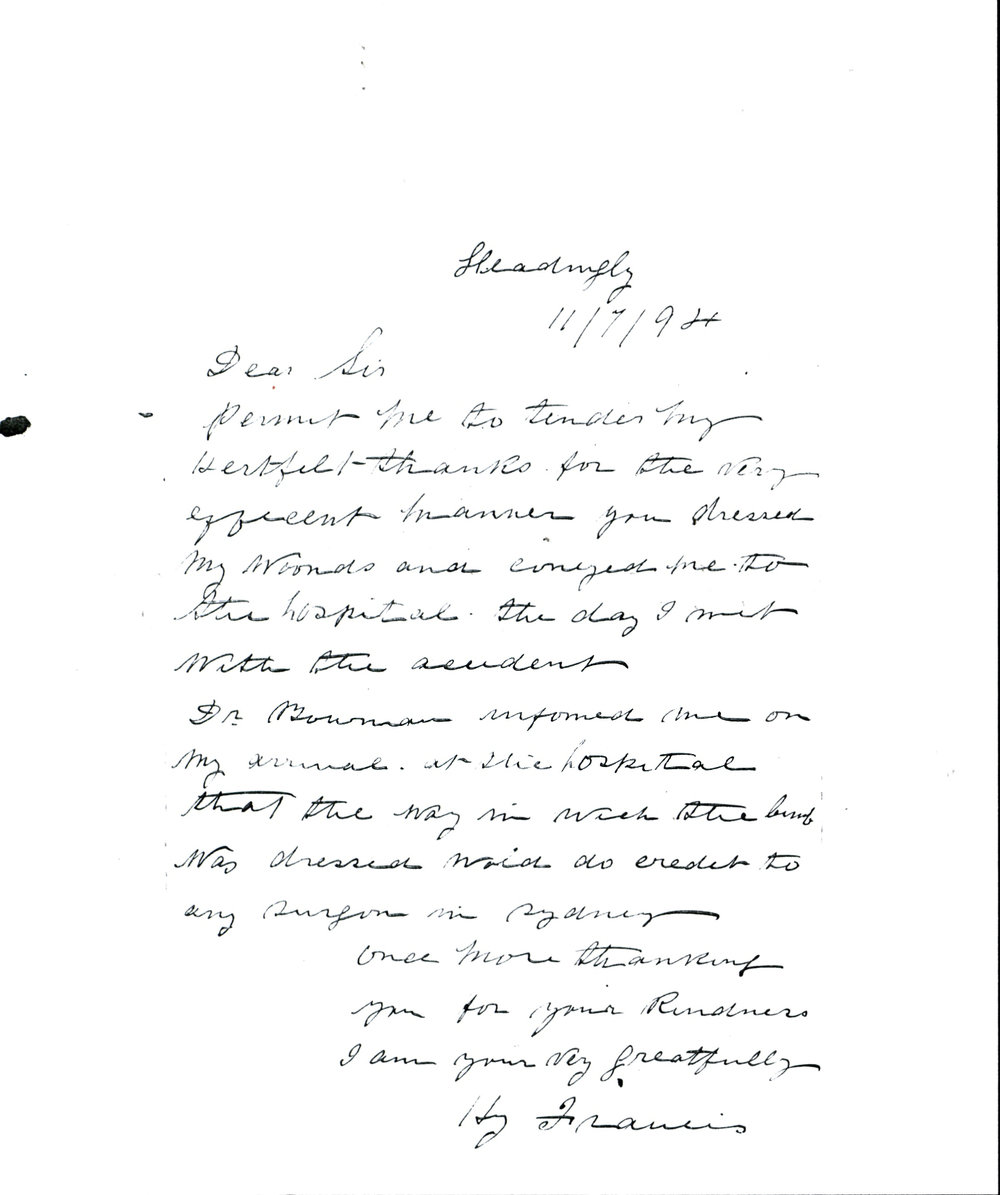 Headingly
11/7/94
Dear Sir
Permit me to tender my
Hertfelt thanks for the very
efficent manner you dressed
my Woonds and conveyed me to
the hospital. the day I met
With the accident
Dr Bowman infomed me on
my arrival. at the hospital
that the way in wich the limb
Was dressed woid do credet to
any surgon in sydney
once more thanking
you for your Kindness
I am your very greatfully
Hy Francis